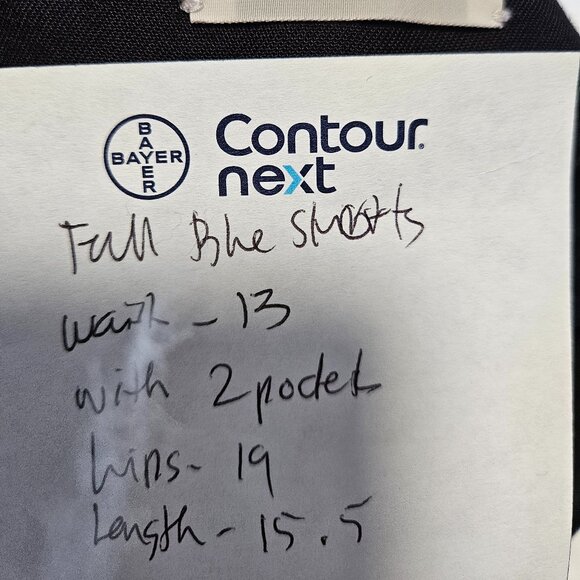 BAYER
BAYER
Contour®
next
Full Blue Shorts
waist - 13
with 2 pocket
hips - 19
Length - 15.5